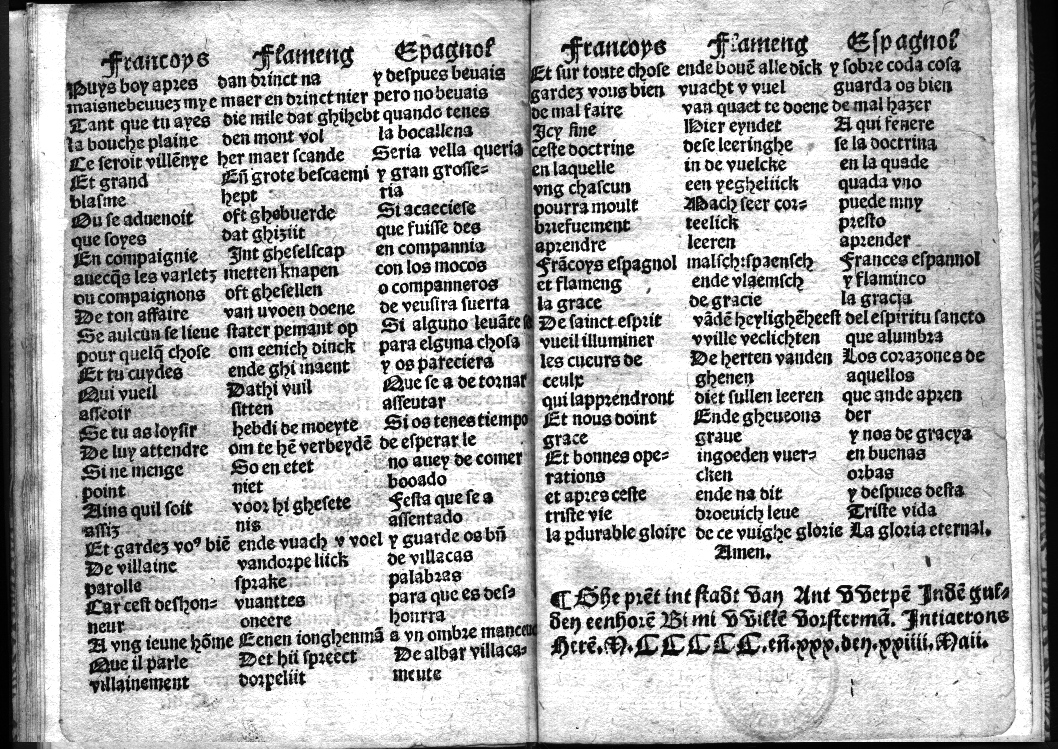 Francoys Flameng Epagnol
Puys boy apres dan drinct na y despues bevais
maisnebeuuez mye maer en drinct nier pero no bevais
Tant que tu ayes die mile dat ghihebt quando tenes
la bouche plaine den mont vol la bocallena
Ce seroit villēnye her maer scande Seria vella queria
Et grand Eñ grote bescaemi y gran grosse-
blasme hept ria
Ou se aduenoit oft ghebuerde Si acaeciese
que soyes dat ghiziit que fuisse des
En compaignie Int gheselscap en compannia
auecq̄s les varletz metten knapen con los mocos
ou compaignons oft ghesellen o companneros
De ton affaire van uvoen doene de veusira suerta
Se aulcun se lieue stater pemant op Si alguno levāte se
pour quelq̄ chose om eenich dinck para elguna chosa
Et tu cuydes ende ghi maent y os pareciera
Qui vueil Dathi vuil Que se a de tornar
asseoir sitten assentar
Se tu as loysir hebdi de moeyte Si os tenes tiempo
De luy attendre om te hē verbeydē de esperar le
Si ne menge So en etet no auey de comer
point niet booado
Ains quil soit voor hi ghesete Festa que se a
assiz nis assentado
Et gardez vo⁹ biē ende vuach v voel y guarde os bñ
De villaine vandorpe liick de villacas
parolle sprake palabras
Car cest deshon- vuanttes para que es des-
neur oneere honrra
A vng ieune hōme Eenen ionghenmā a vn ombre mancevo
Que il parle Det hii spreect De albar villaca-
villainement dorpeliit mente
Francoys Flameng Espagnol
Et sur toute chose ende bouē alle dick y sobre coda cosa
gardez vous bien vuacht v vuel guarda os bien
de mal faire van quaet te doene de mal hazer
Icy fine Hier eyndet A qui fenere
ceste doctrine dese leeringhe se la doctrina
en laquelle in de vuelcke en la quade
vng chascun een yegheliick quada vno
pourra moult Mach seer cor- puede muy
briefuement teelick presto
aprendre leeren aprender
Frācoys espagnol malsch:spaensch Frances espannol
et flameng ende vlaemsch y flaminco
la grace de gracie la gracia
De sainct esprit vādē heylighēheest del espiritu sancto
vueil illuminer vville veclichten que alumbra
les cueurs de De herten vanden Los corazones de
ceulx ghenen aquellos
qui lapprendront diet sullen leeren que ande apren
Et nous doint Ende gheueons der
grace graue y nos de gracya
Et bonnes ope- ingoeden vuer- en buenas
rations cken orbas
et apres ceste ende na dit y despues desta
triste vie droeuich leue Triste vida
la pdurable gloire de ce vuighe glorie La gloria eternal.
Amen.
¶ Ghe prēt int stadt van Ant VVerpē Indē gul-
den eenhorē Bi mi VVillē Vorstermā. Intiaerons
Herē. M. CCCCC. eñ. xxx. den. xxiiii. Maii.